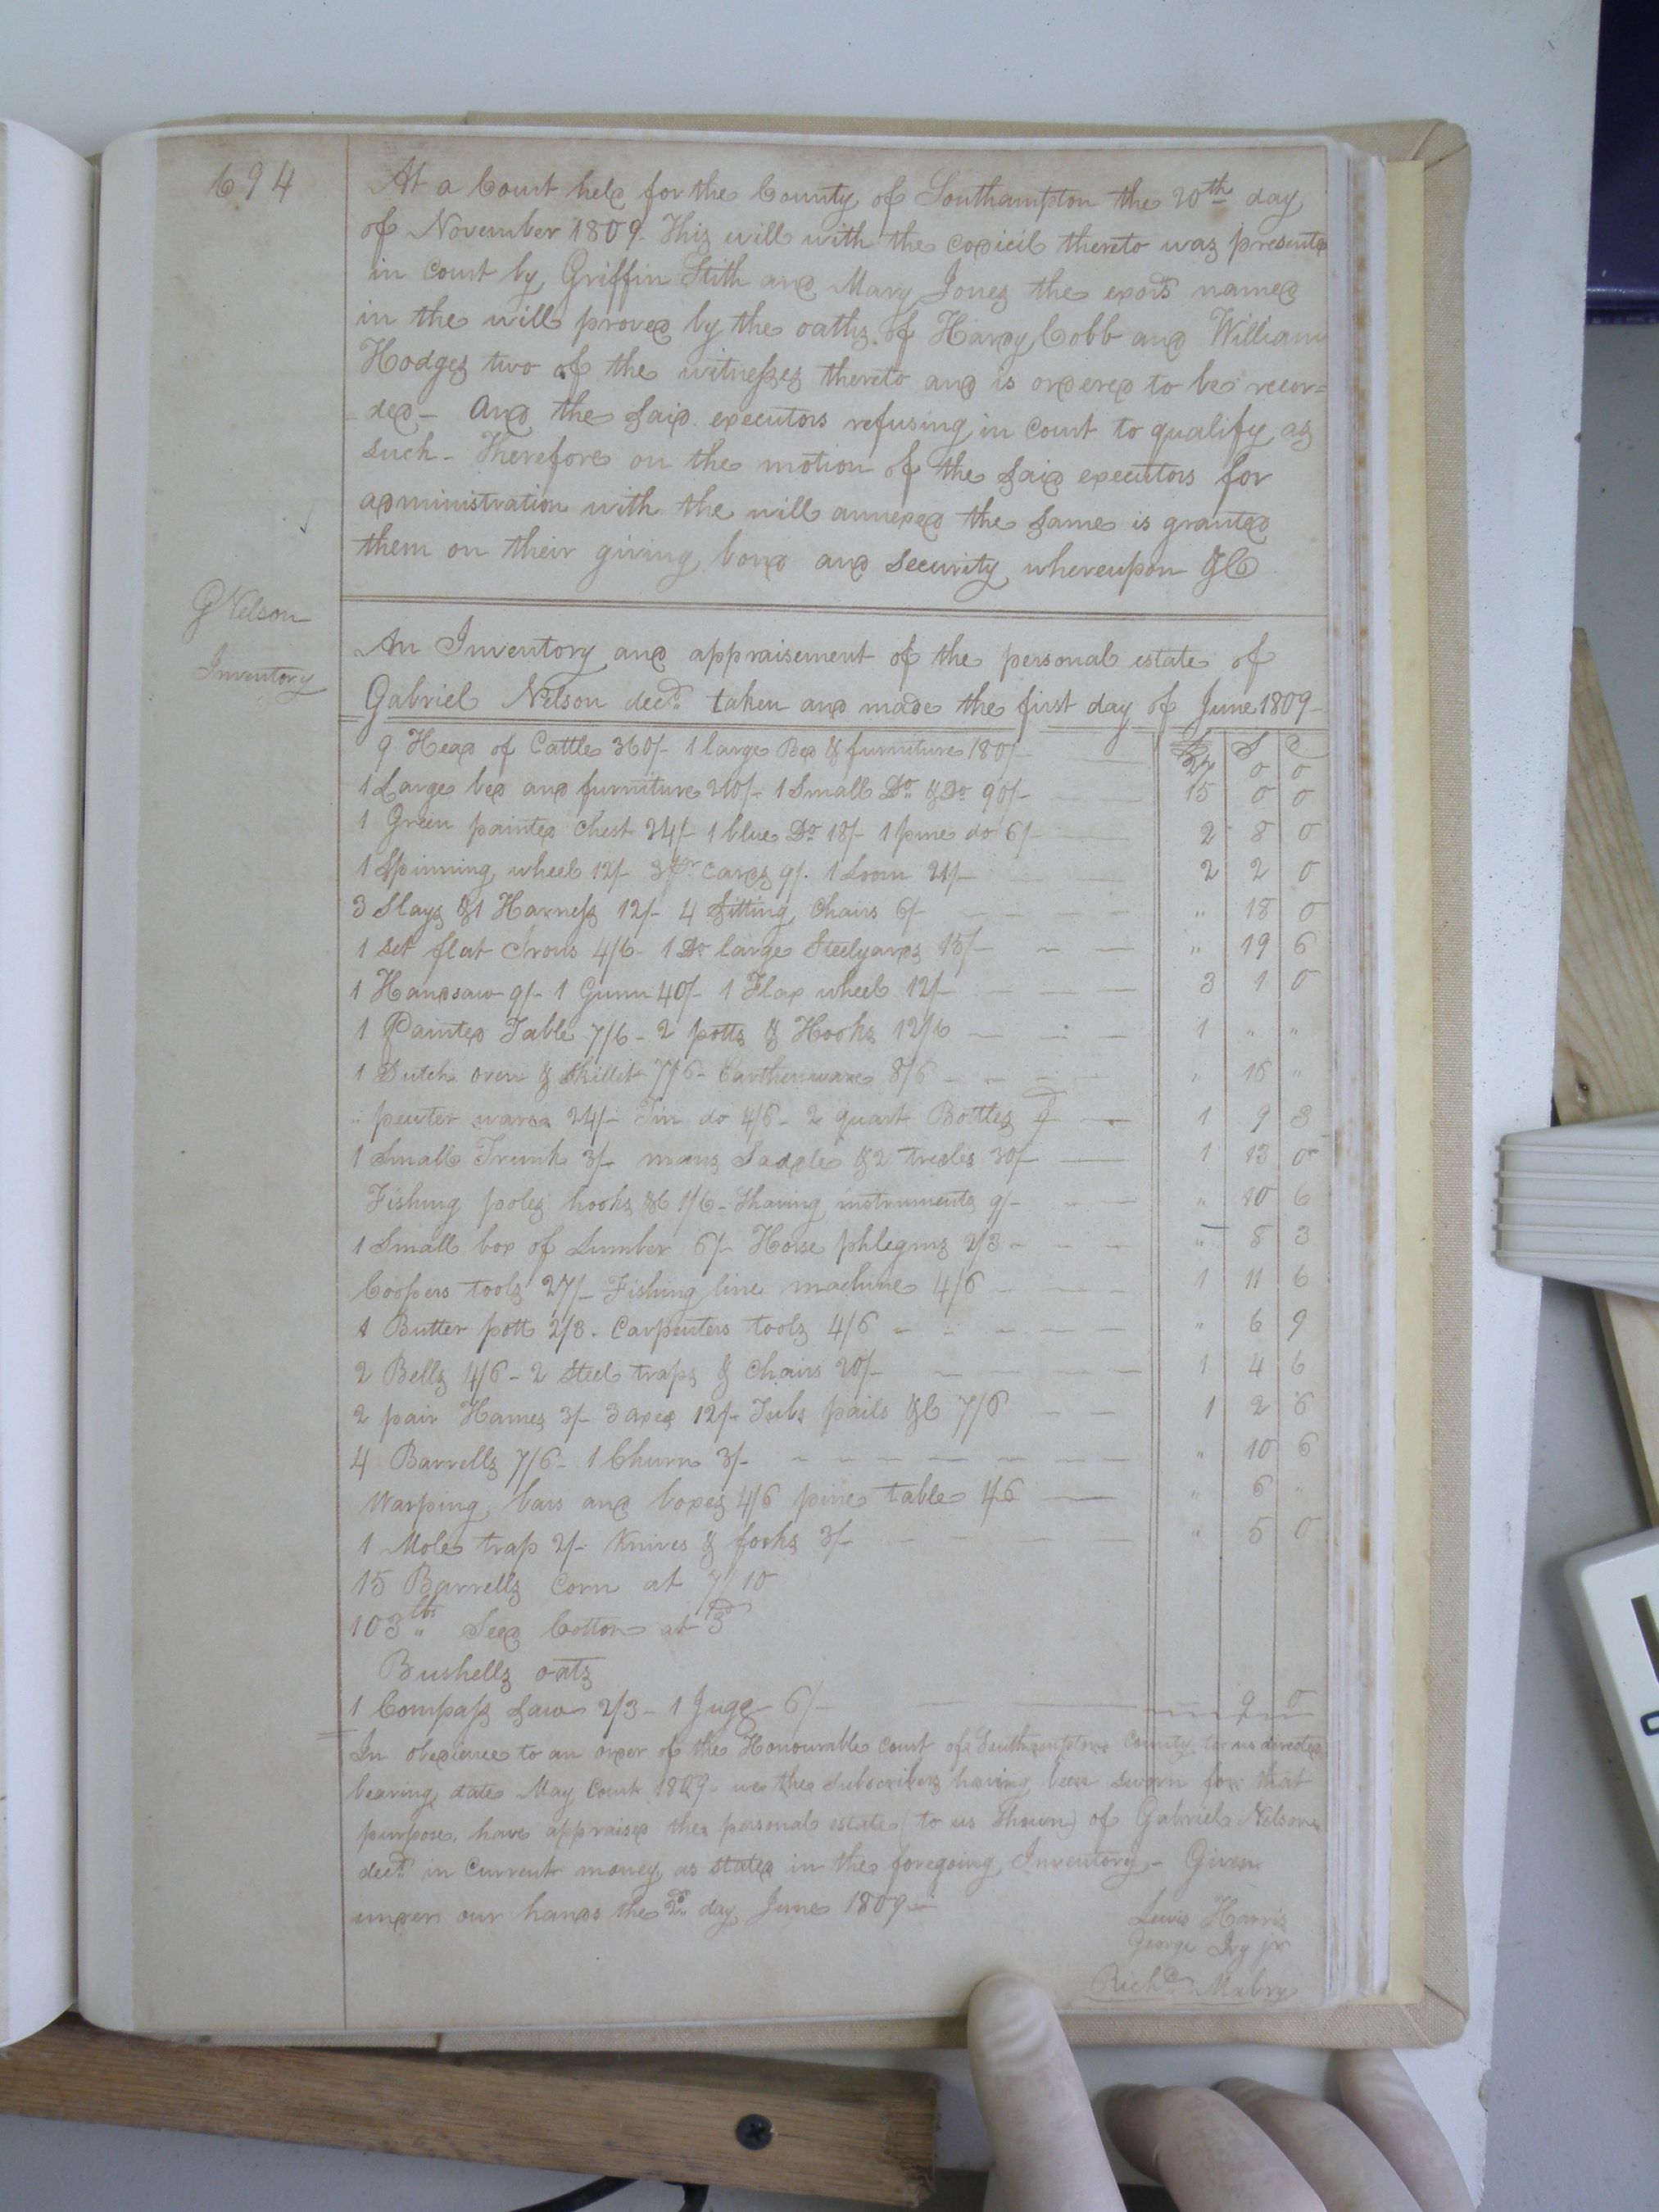 694
At a Court held for the County of Southampton the 20th day
of November 1809. This will with the codicil thereto was presented
in court by Griffin Stith and Mary Jones the exors named
in the will proved by the oaths of Hardy Cobb and William
Hodges two of the witnesses thereto and is ordered to be recor=
ded - And the said executors refusing in court to qualify as
such - Therefore on the motion of the said executors for
administration with the will annexed the same is granted
them on their giving bond and security whereupon &C
G Nelson
Inventory
An Inventory and appraisement of the personal estate of
Gabriel Nelson decd. taken and made the first day of June 1809 -
£ S d
9 Head of Cattle 360/- 1 large Bed & furniture 180/- 27 0 0
1 Large bed and furniture 210/- 1 Small Do. & Do 90/- 15 0 0
1 Green painted chest 24/- 1 blue Do 18/- 1 pine do 6/- 2 8 0
1 Spinning wheel 12/- 3 pr Cards 9/. 1 Loom 21/- 2 2 0
3 Slays & 1 Harness 12/- 4 Sitting Chairs 6/- " 18 0
1 set flat Irons 4/6 - 1 Do large Steelyards 15/- " 19 6
1 Handsaw 9/- 1 Gunn 40/- 1 Flax wheel 12/- 3 1 0
1 Painted Table 7/6 - 2 potts & Hooks 12/6 1 " "
1 Dutch oven & Skillet 7/6 - Earthenware 8/6 " 16 "
" pewter ware 24/- Tin do 4/6 - 2 quart Bottles 9d 1 9 3
1 Small Trunk 3/- mans Saddle & 2 Bredles 30/- 1 13 0
Fishing poles hooks &C 1/6 - Shaving instruments 9/- " 10 6
1 Small box of Lumber 6/- Horse phlegms 2/3 - " 8 3
Coopers tools 27/- Fishing line machine 4/6 - 1 11 6
1 Butter pott 2/3 - Carpenters tools 4/6 " 6 9
2 Bells 4/6 - 2 Steel traps & Chairs 20/- 1 4 6
2 pair Hames 3/- 3 axes 12/- Tubs pails &C 7/6 1 2 6
4 Barrells 7/6 - 1 Churn 3/- " 10 6
Warping bars and boxes 4/6 pine table 1/6 " 6 "
1 Mole trap 2/- Knives & forks 3/- " 5 0
15 Barrells Corn at 7/10
103 lbs " Seed Cotton at 3d
Bushells oats
1 Compass Saw 2/3 - 1 Jugg 6/- 9 0
In obedience to an order of the Honourable court of Southampton County to us directed
bearing date May Court 1809 - we the Subscribers having been sworn for that
purpose, have appraised the personal estate (to us Shown) of Gabriel Nelson
decd. in current money as stated in the foregoing Inventory - Given
under our hands the 2d. day June 1809 -
Lewis Harris
George Ivy jr
Richd. Mabry